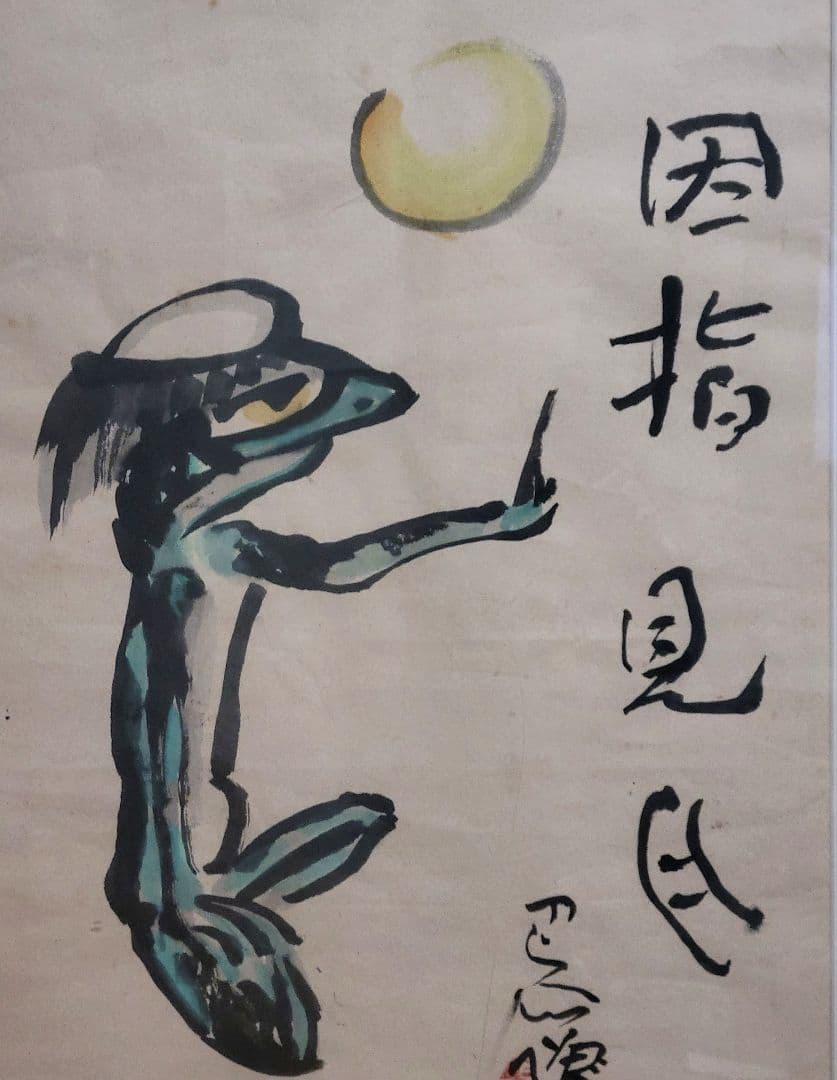 因指見月